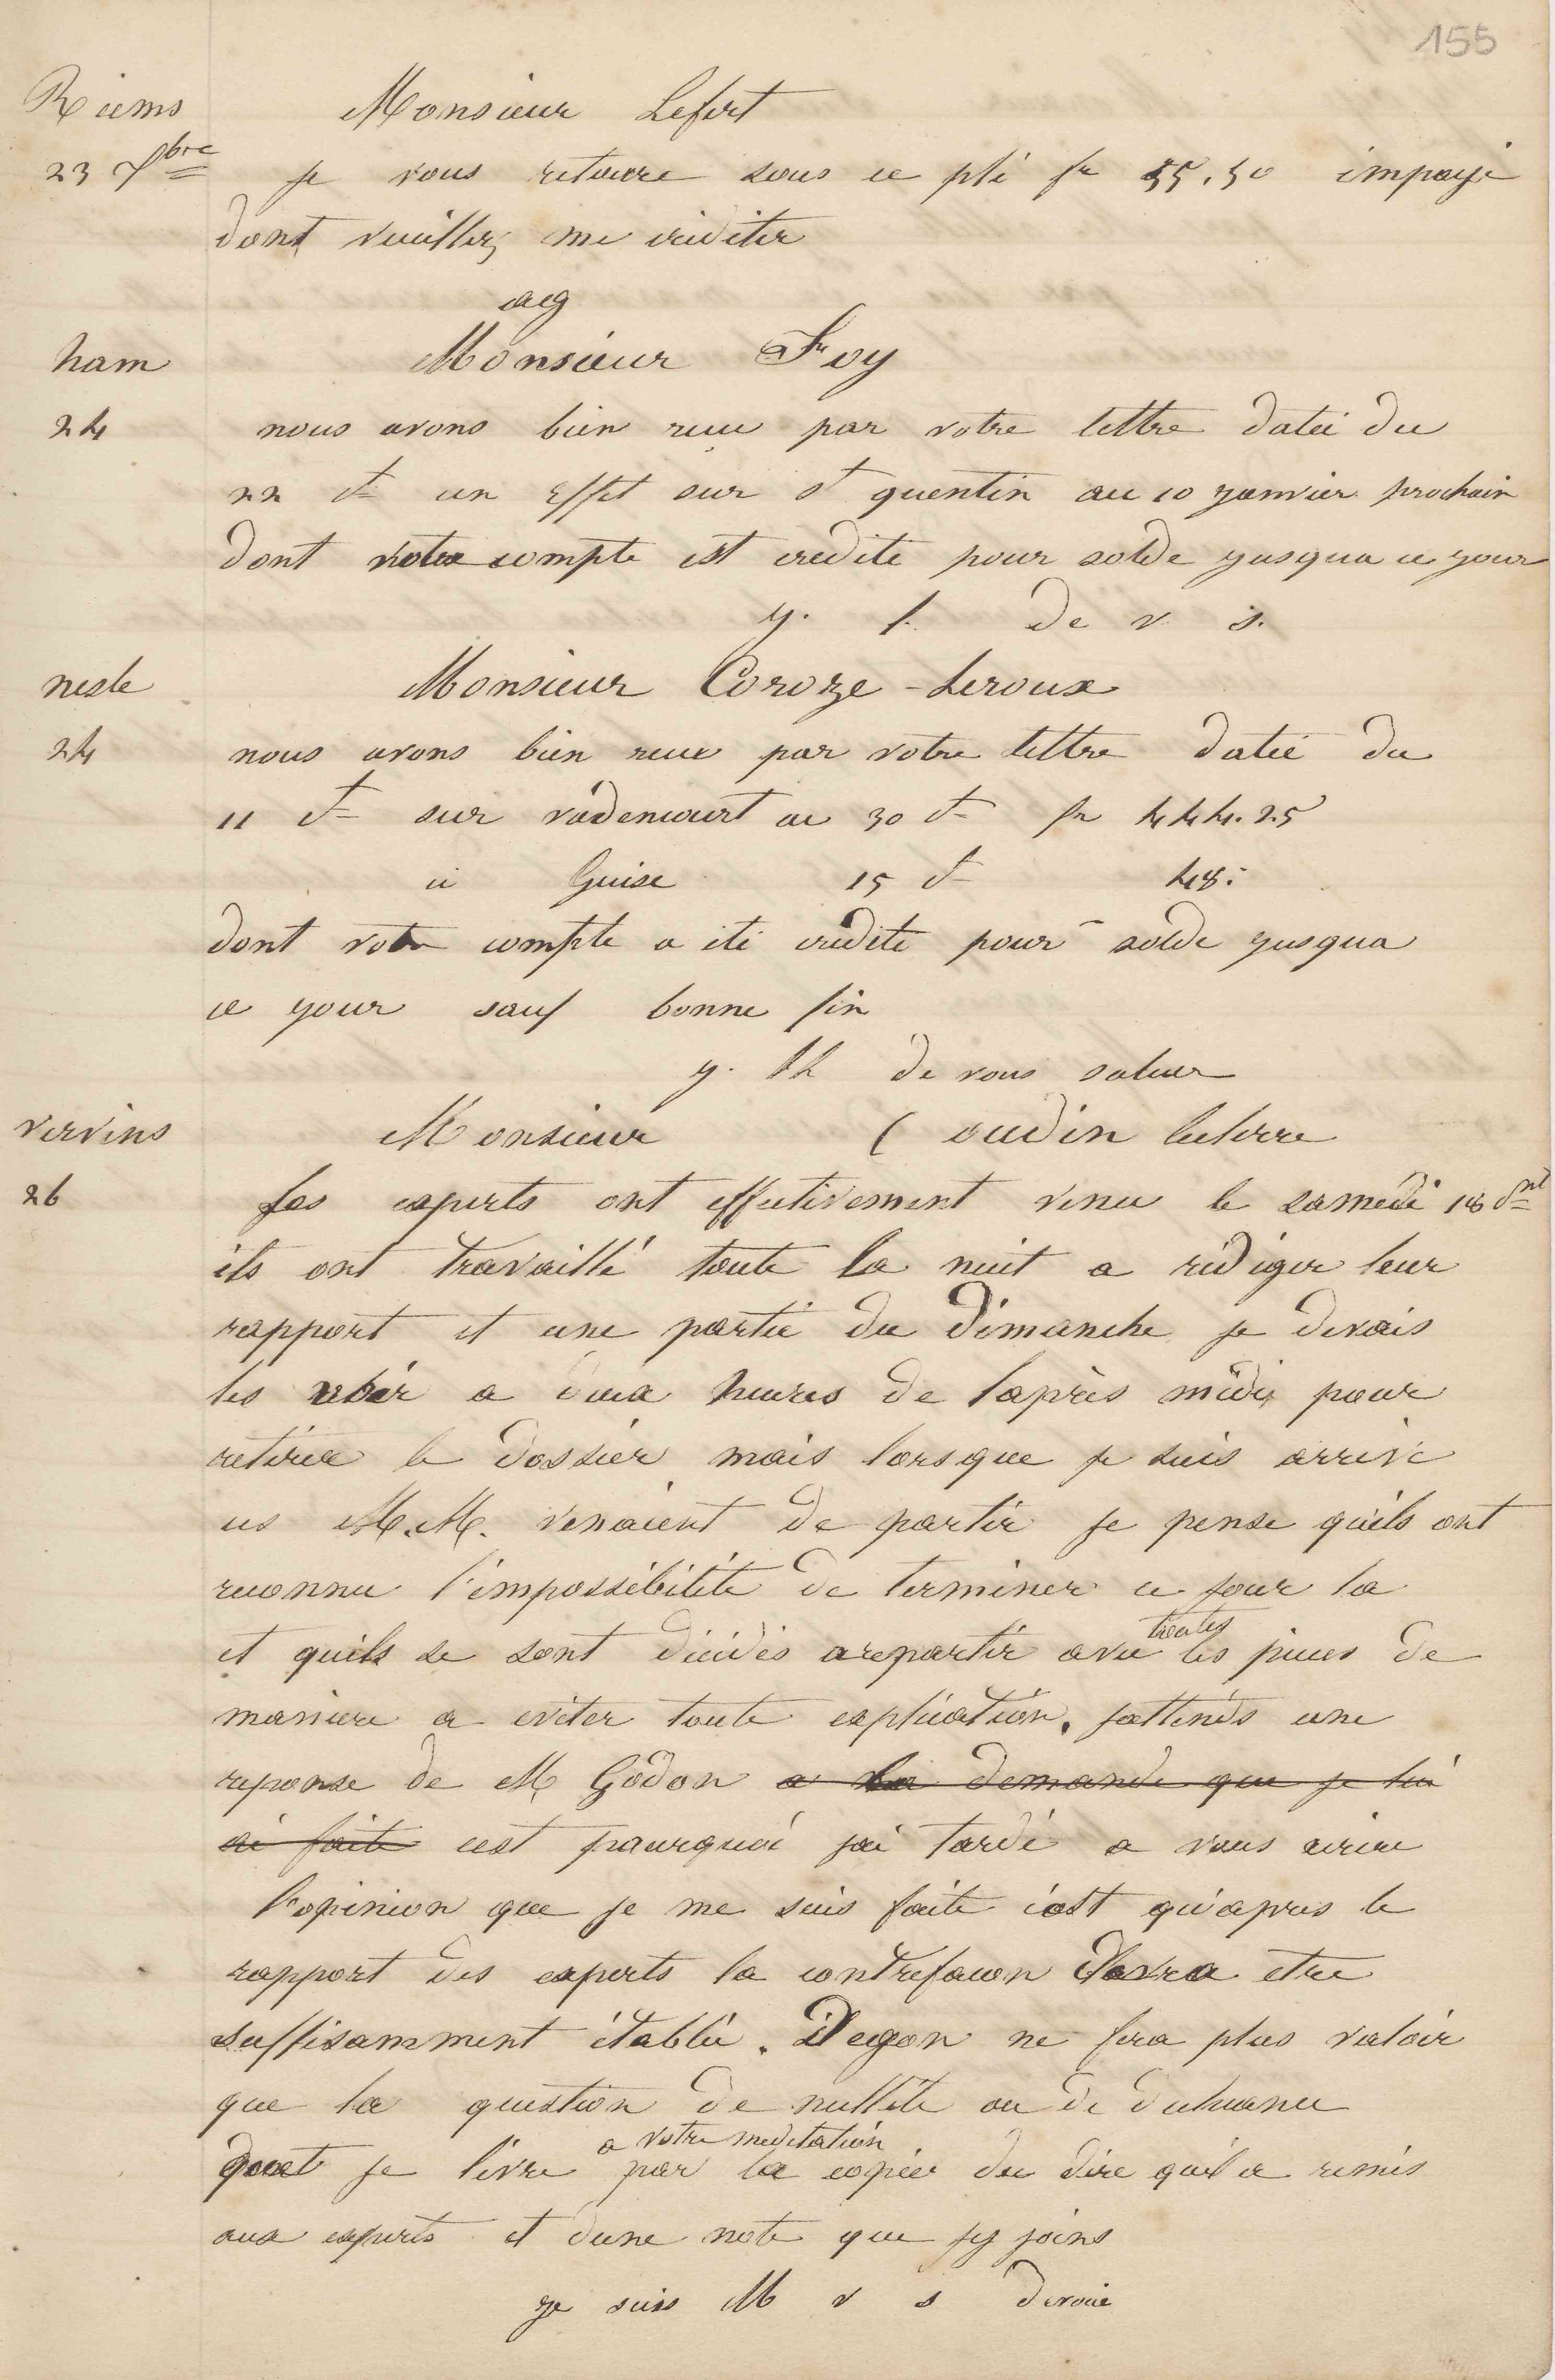 155
Riems
Monsieur Lefort
23 Xbre
je vous retourne sous ce pli fr 55,50 impayé
dont veuillez me créditer
Monsieur Foy
ham
24
nous avons bien recu par votre lettre datée du
22 Ct un Effet sur St quentin au 10 janvier prochain
dont votre compte est credité pour solde jusqua ce jour
j. l. de v s.
nesle
Monsieur Coroze-Leroux
24
nous avons bien recu par votre lettre datée du
11 Ct sur vadencourt au 30 Ct fr 444.25
Guise 15 Ct 48:
dont votre compte a été crédité pour solde jusqua
ce jour sauf bonne fin
j. lh de vous saluer
vervins
Monsieur (oudin leclerre
26
Les experts ont effectivement venu le samedi 18 Cnt
ils ont travaillé toute la nuit a rédiger leur
rapport et une partie du dimanche je devais
les voir a deux heures de l'après midi pour
retirer le dossier mais lorsque je suis arrivé
ces M.M. venaient de partir je pense quils ont
reconnu l'impossibilité de terminer ce jour la
et quils se sont décidés a repartir avec toutes les pieces de
maniere a eviter toute explication. jattends une
reponse de M Godon a la demande que je lui
ai faite cest pourquoi jai tardé a vous ecrire
l'opinion que je me suis faite c'est qu'apres le
rapport des experts la contrefacon devra etre
suffisamment établie. Degon ne fera plus valoir
que la question de nullité ou de decheance
dont je livre a votre meditation par la copie du dire quil a remis
aux experts et dune note que jy joins
je suis M v s devoué